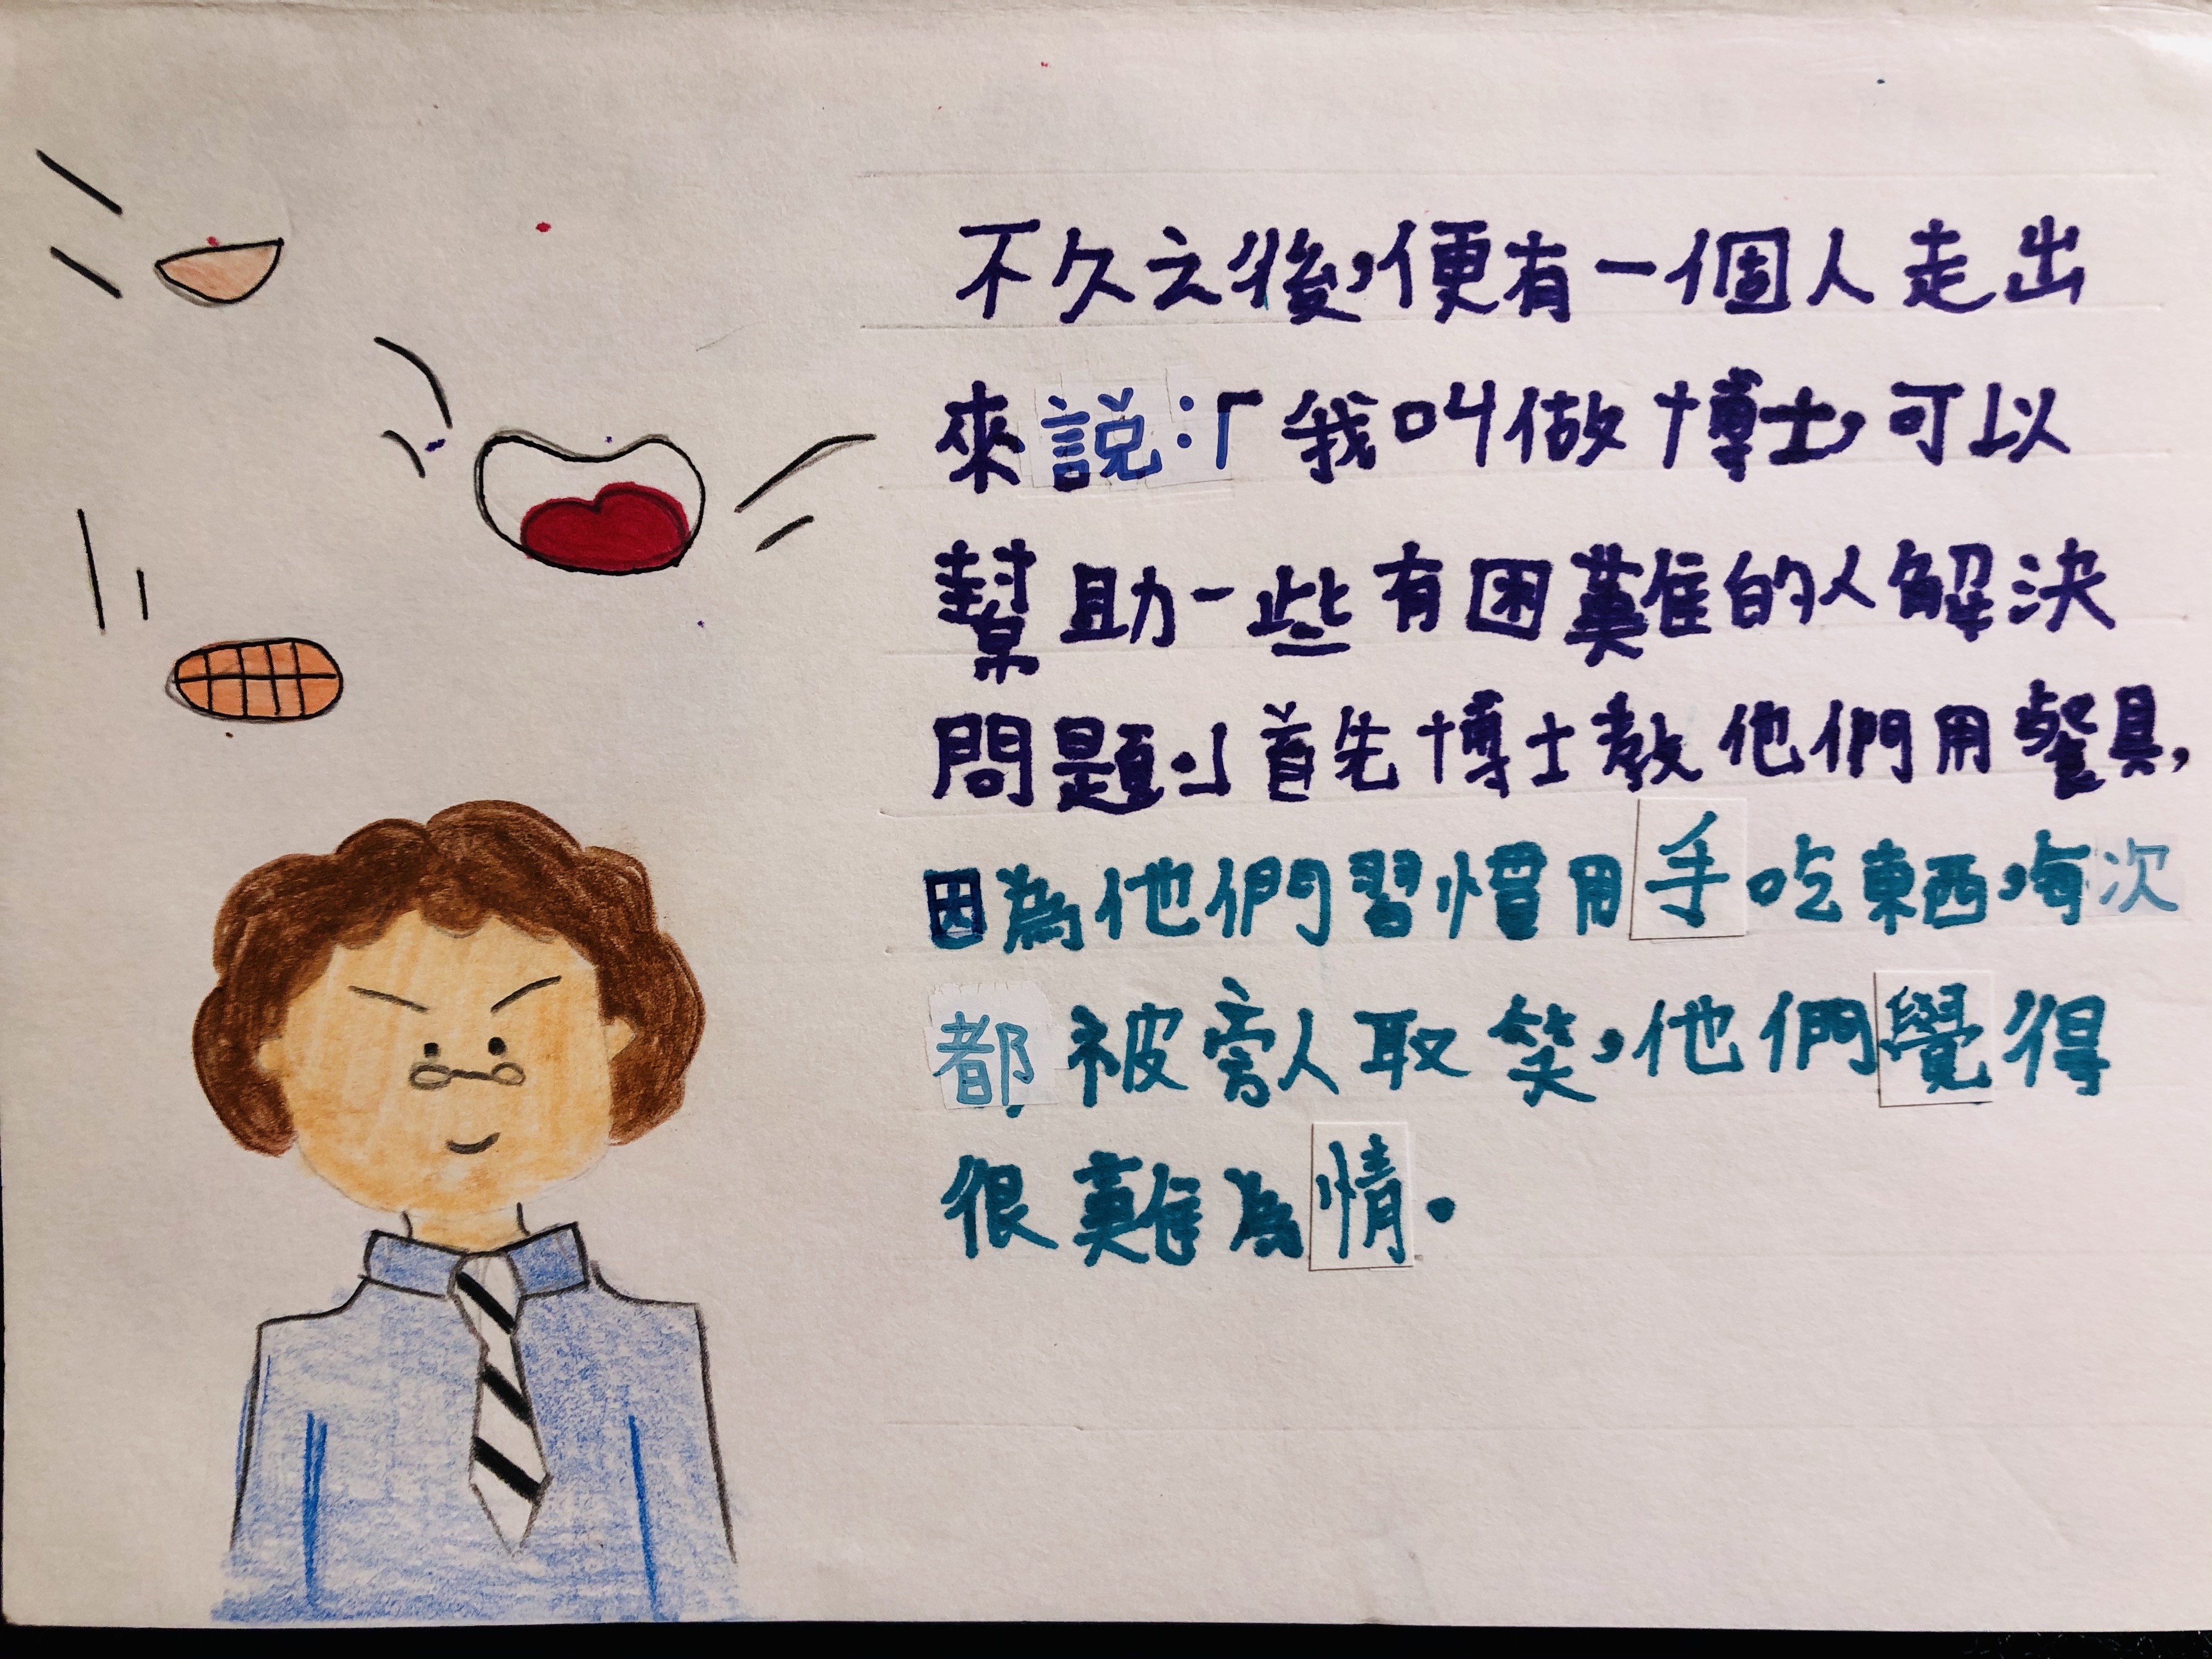 不久之後,便有一個人走出
來說:「我叫做博士,可以
幫助一些有困難的人解決
問題。」首先博士教他們用餐具,
因為他們習慣用手吃東西,每次
都被旁人取笑,他們覺得
很難為情。